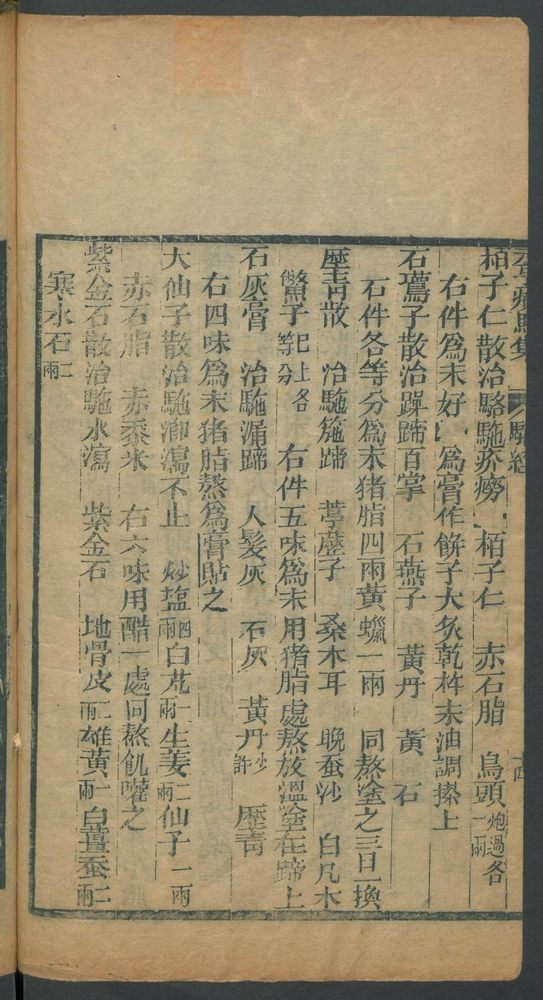 栢子仁散治駱駞疥癆 栢子仁 赤石脂 烏頭炮過各一兩
右件爲末好 爲膏作餅子大炙乾杵末油調搽上
石鷰子散治蹕蹄百掌 石燕子 黃丹 黃 石
石件各等分爲末猪脂四兩黃蠟二兩 同熬塗之三日一換
瀝青散 治駞蹄 葶藶子 桑木耳 晚蚕沙 白凡木
鱉子已上各等分 右件五味爲末用猪脂處熬放溫塗在蹄上
石灰膏 治駞漏蹄 人髮灰 石灰 黃丹少許 瀝青
右四味爲末猪脂熬爲膏貼之
大仙子散治駞瀉不止 炒塩四兩白凡一兩生姜二兩仙子一兩
赤石脂 赤黍米 右六味用醋一處同熬飢嚾之
紫金石散治駞水瀉 紫金石 地骨皮二兩雄黃一兩白薑蚕二兩
寒水石二兩